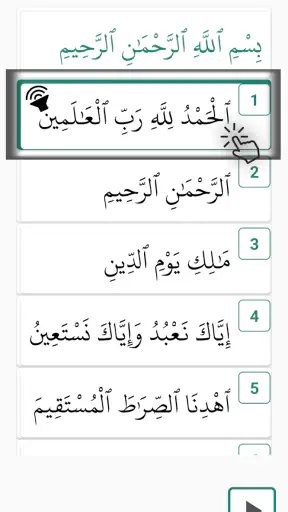 بِسْمِ ٱللَّهِ ٱلرَّحْمَٰنِ ٱلرَّحِيمِ
1
ٱلْحَمْدُ لِلَّهِ رَبِّ ٱلْعَٰلَمِينَ
2
ٱلرَّحْمَٰنِ ٱلرَّحِيمِ
3
مَٰلِكِ يَوْمِ ٱلدِّينِ
4
إِيَّاكَ نَعْبُدُ وَإِيَّاكَ نَسْتَعِينُ
5
ٱهْدِنَا ٱلصِّرَٰطَ ٱلْمُسْتَقِيمَ